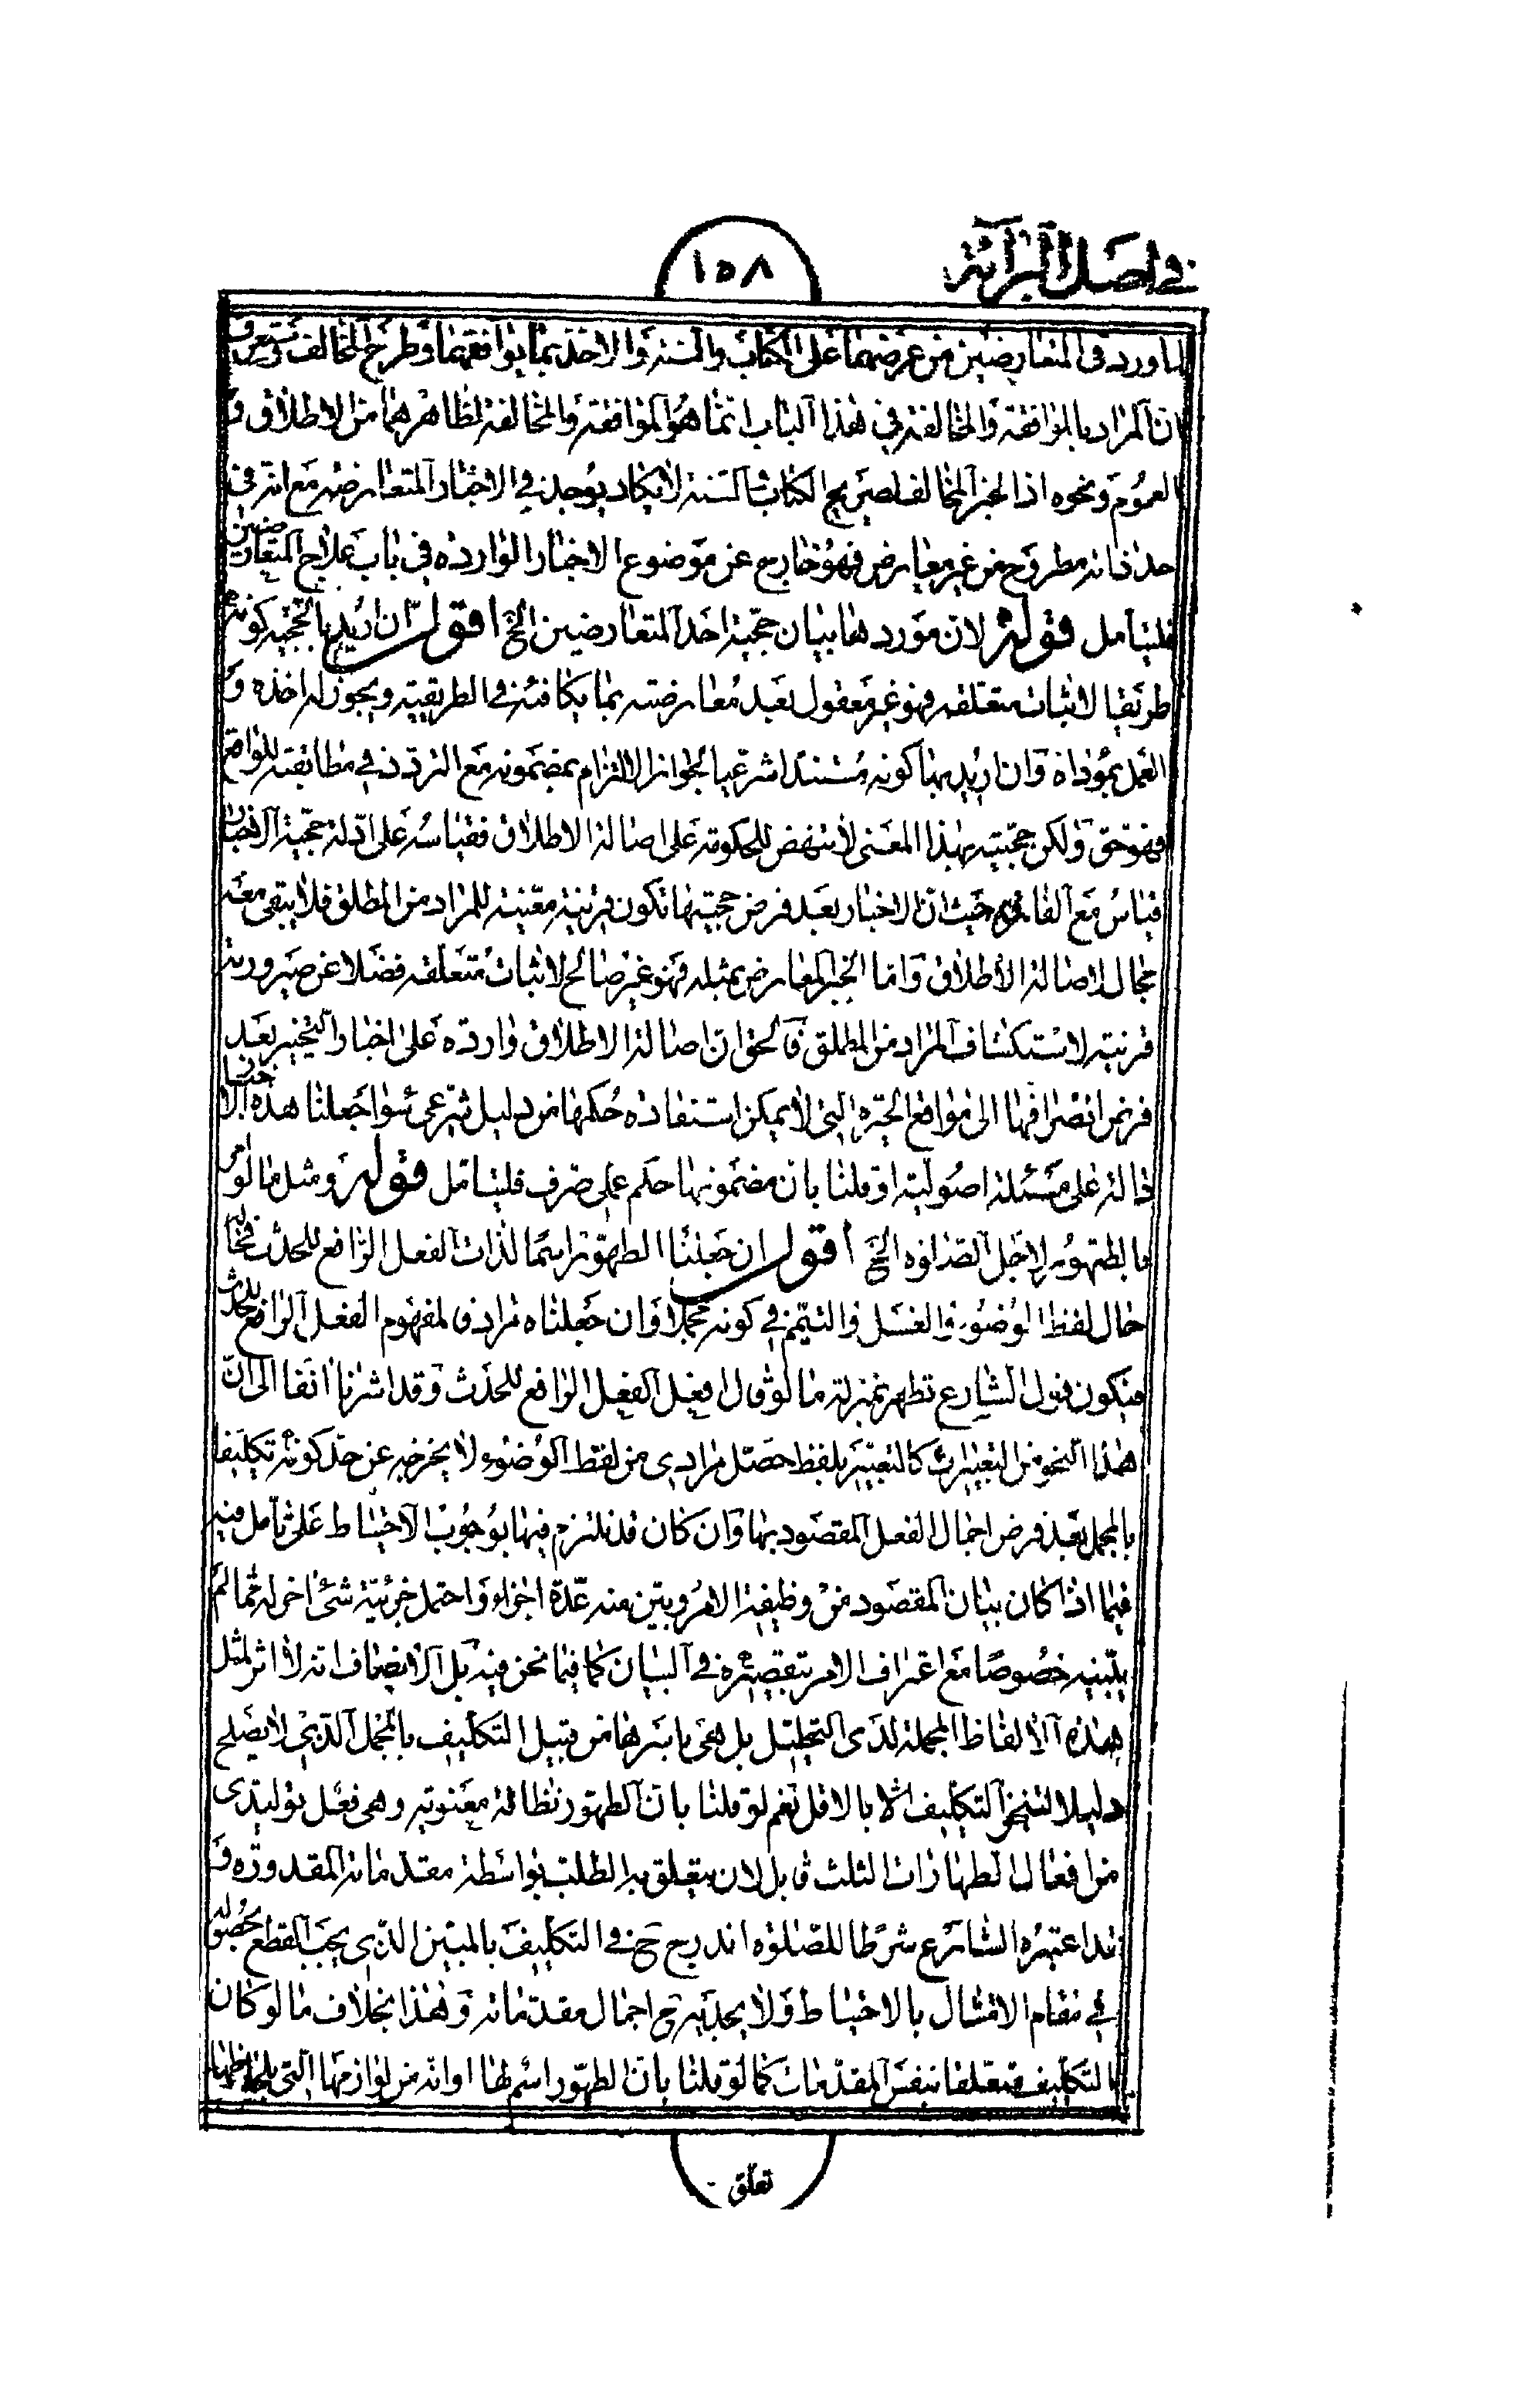 في اصل البرآئة
١٥٨
لما ورد في المتعارضين من عرضهما على الكتاب والسنة والاخذ بما يوافقهما وطرح المخالف وستعرف
ان المراد بالموافقة والمخالفة في هذا الباب انما هو الموافقة والمخالفة لظاهرهما من الاطلاق و
العموم ونحوه اذ الخبر المخالف لصريح الكتاب والسنة لا يكاد يوجد في الاخبار المتعارضة مع انه في
حد ذاته مطروح من غير معارض فهو خارج عن موضوع الاخبار الواردة في باب علاج المتعارضين
فليتامل قوله لان موردها بيان حجية احد المتعارضين الخ اقول ان اريد بالحجية كونه
طريقا لاثبات متعلقه فهو غير معقول بعد معارضته بما يكافئه في الطريقية ويجوز له اخذه و
العمل بمؤداه وان اريد بها كونه مستندا شرعيا لجواز الالتزام بمضمونه مع التردد في مطابقته للواقع
فهو حق ولكن حجيته بهذا المعنى لا تنهض للحكومة على اصالة الاطلاق فقياسه على ادلة حجية الاخبار
قياس مع الفارق حيث ان الاخبار بعد فرض حجيتها تكون قرينة معينة للمراد من المطلق فلا يبقى معه
مجال لاصالة الاطلاق واما الخبر المعارض بمثله فهو غير صالح لاثبات متعلقه فضلا عن صيرورته
قرينة لاستكشاف المراد من المطلق فالحق ان اصالة الاطلاق واردة على اخبار التخيير بعد
فرض انصرافها الى مواقع الحيرة التي لا يمكن استفادة حكمها من دليل شرعي سواء جعلنا هذه الاخبار
دالة على مسئلة اصولية او قلنا بان مضمونها حكم عملي صرف فليتامل قوله ومثل ما لو امر
بالطهور لاجل الصلوة الخ اقول ان جعلنا الطهور اسما لذات الفعل الرافع للحدث فحاله
حال لفظ الوضوء والغسل والتيمم في كونه مجملا وان جعلناه مرادفا لمفهوم الفعل الرافع للحدث
فيكون قول الشارع تطهر بمنزلة ما لو قال افعل الفعل الرافع للحدث وقد اشرنا انفا الى ان
هذا النحو من التعبيرات كالتعبير بلفظ حصل مرادي من لفظ الوضوء لا يخرجه عن حد كونه تكليفا
بالمجمل بعد فرض اجمال الفعل المقصود بها وان كان قد نلتزم فيها بوجوب الاحتياط على تامل فيه
فيما اذا كان بيان المقصود من وظيفة الامر وبين منه عدة اجزاء واحتمل جزئية شئ اخر له مما لم
يبينه خصوصا مع اعتراف الامر بتقصيره في البيان كما فيما نحن فيه بل الانصاف انه لا اثر لمثل
هذه الالفاظ المجملة لدى التحليل بل هى باسرها من قبيل التكليف بالمجمل الذي لا يصلح
دليلا لتنجز التكليف الا بالاقل نعم لو قلنا بان الطهور نظافة معنوية وهى فعل توليدى
من افعال الطهارات الثلث قابل لان يتعلق به الطلب بواسطة مقدماته المقدورة و
قد اعتبره الشارع شرطا للصلوة اندرج ح في التكليف بالمبين الذي يجب القطع بحصوله
في مقام الامتثال بالاحتياط ولا يجديه ح اجمال مقدماته وهذا بخلاف ما لو كان
التكليف متعلقا بنفس المقدمات كما لو قلنا بان الطهور اسم لها او انه من لوازمها التي
تعلق